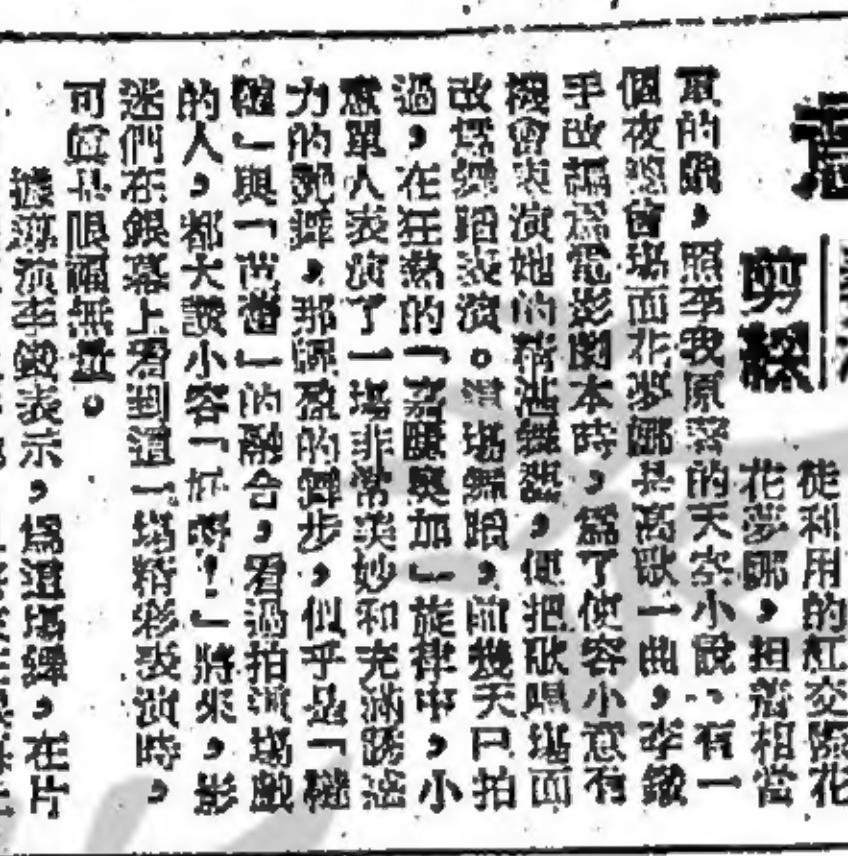 徒利用的紅交際花
花夢娜,担着相當
剪
重的戲,照李我原著的天空小說,有一
個夜總會場面花夢娜是高歌一曲,李鐵
手改編爲電影劇本時,爲了使容小意有
機會表演她的精湛舞藝,便把歌唱場面
改爲舞蹈表演。這場舞蹈,前幾天已拍
過,在狂熱的「嘉奧加」旋律中,小
意單人表演了一場非常美妙和充滿誘惑
力的艷舞,那輕盈的舞步,似乎是「
」與「芭蕾」的融合,看過拍這場戲
的人,都大讚小容「好嘢!」將來,影
迷們在銀幕上看到這一場精彩表演時,
可眞是眼福無量。
據導演李鐵表示,爲這場舞,在片